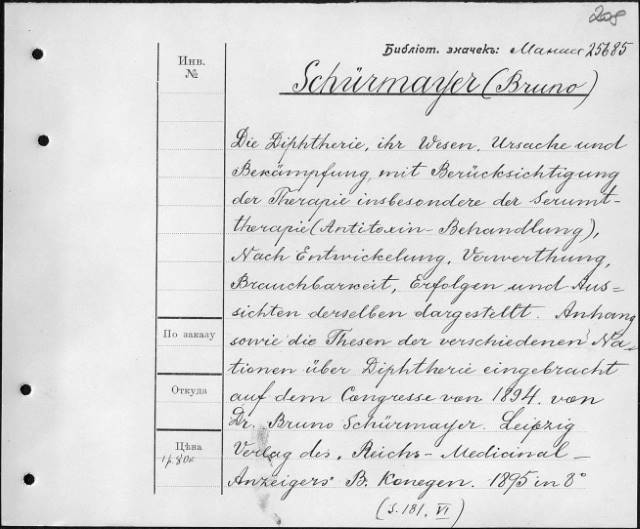 208
Библіот. значекъ: 25685
Инв.
№
Schürmayer (Bruno)
Die Diphtherie, ihr Wesen. Ursache und
Bekämpfung mit Berücksichtigung
der Therapie insbesondere der Serumt-
therapie (Antitoxin-Behandlung),
Nach Entwickelung, Verwerthung,
Brauchbarkeit, Erfolgen und Aus=
sichten derselben dargestellt. Anhang
sowie die Thesen der verschiedenen Na-
tionen über Diphtherie eingebracht
auf dem Congresse von 1894. von
Dr. Bruno Schürmayer. Leipzig
Verlag des „Reichs-Medicinal-
Anzeigers" B. Konegen. 1895 in 8°
(S. 181. VI)
По заказу
Откуда
Цѣна
1р. 80к